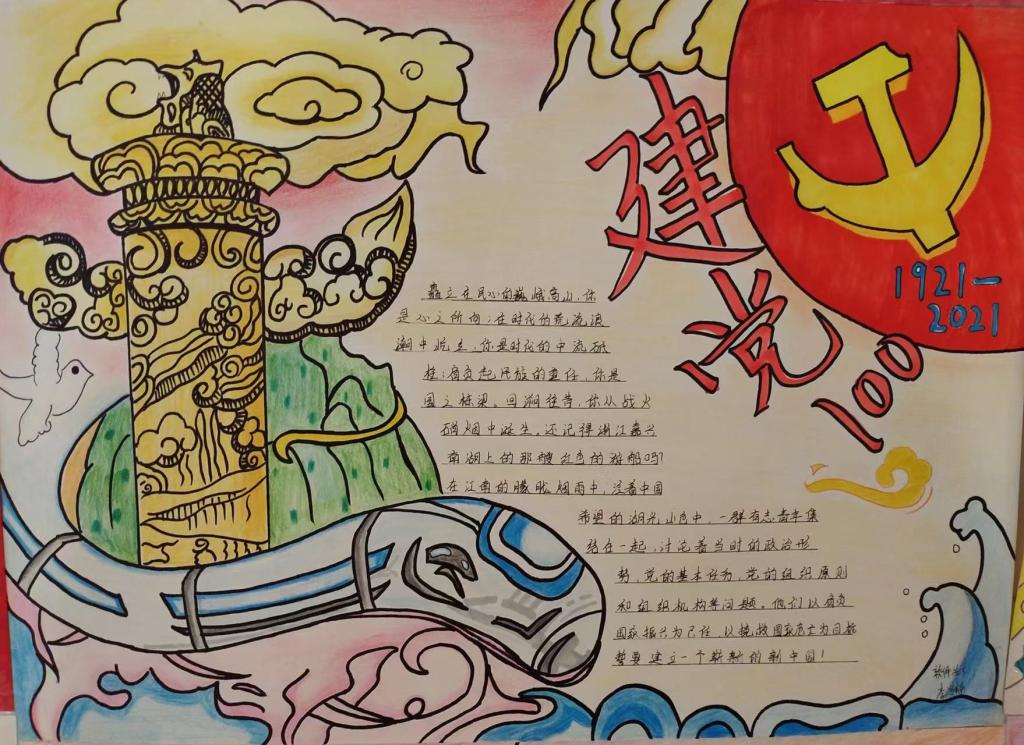 建党100
1921—
2021
矗立在民心的巍峨高山,你
是心之所向;在时代的荒流浪
潮中屹立,你是时代的中流砥
柱;肩负起民族的重任,你是
国之栋梁。回溯往昔,你从战火
硝烟中诞生。还记得浙江嘉兴
南湖上的那艘红色的游船吗?
在江南的朦胧烟雨中,泛着中国
希望的湖光山色中,一群有志青年集
结在一起,讨论着当时的政治形
势,党的基本任务,党的组织原则
和组织机构等问题。他们以肩负
国家振兴为己任,以挽救国家危亡为目标
誓要建立一个崭新的新中国!